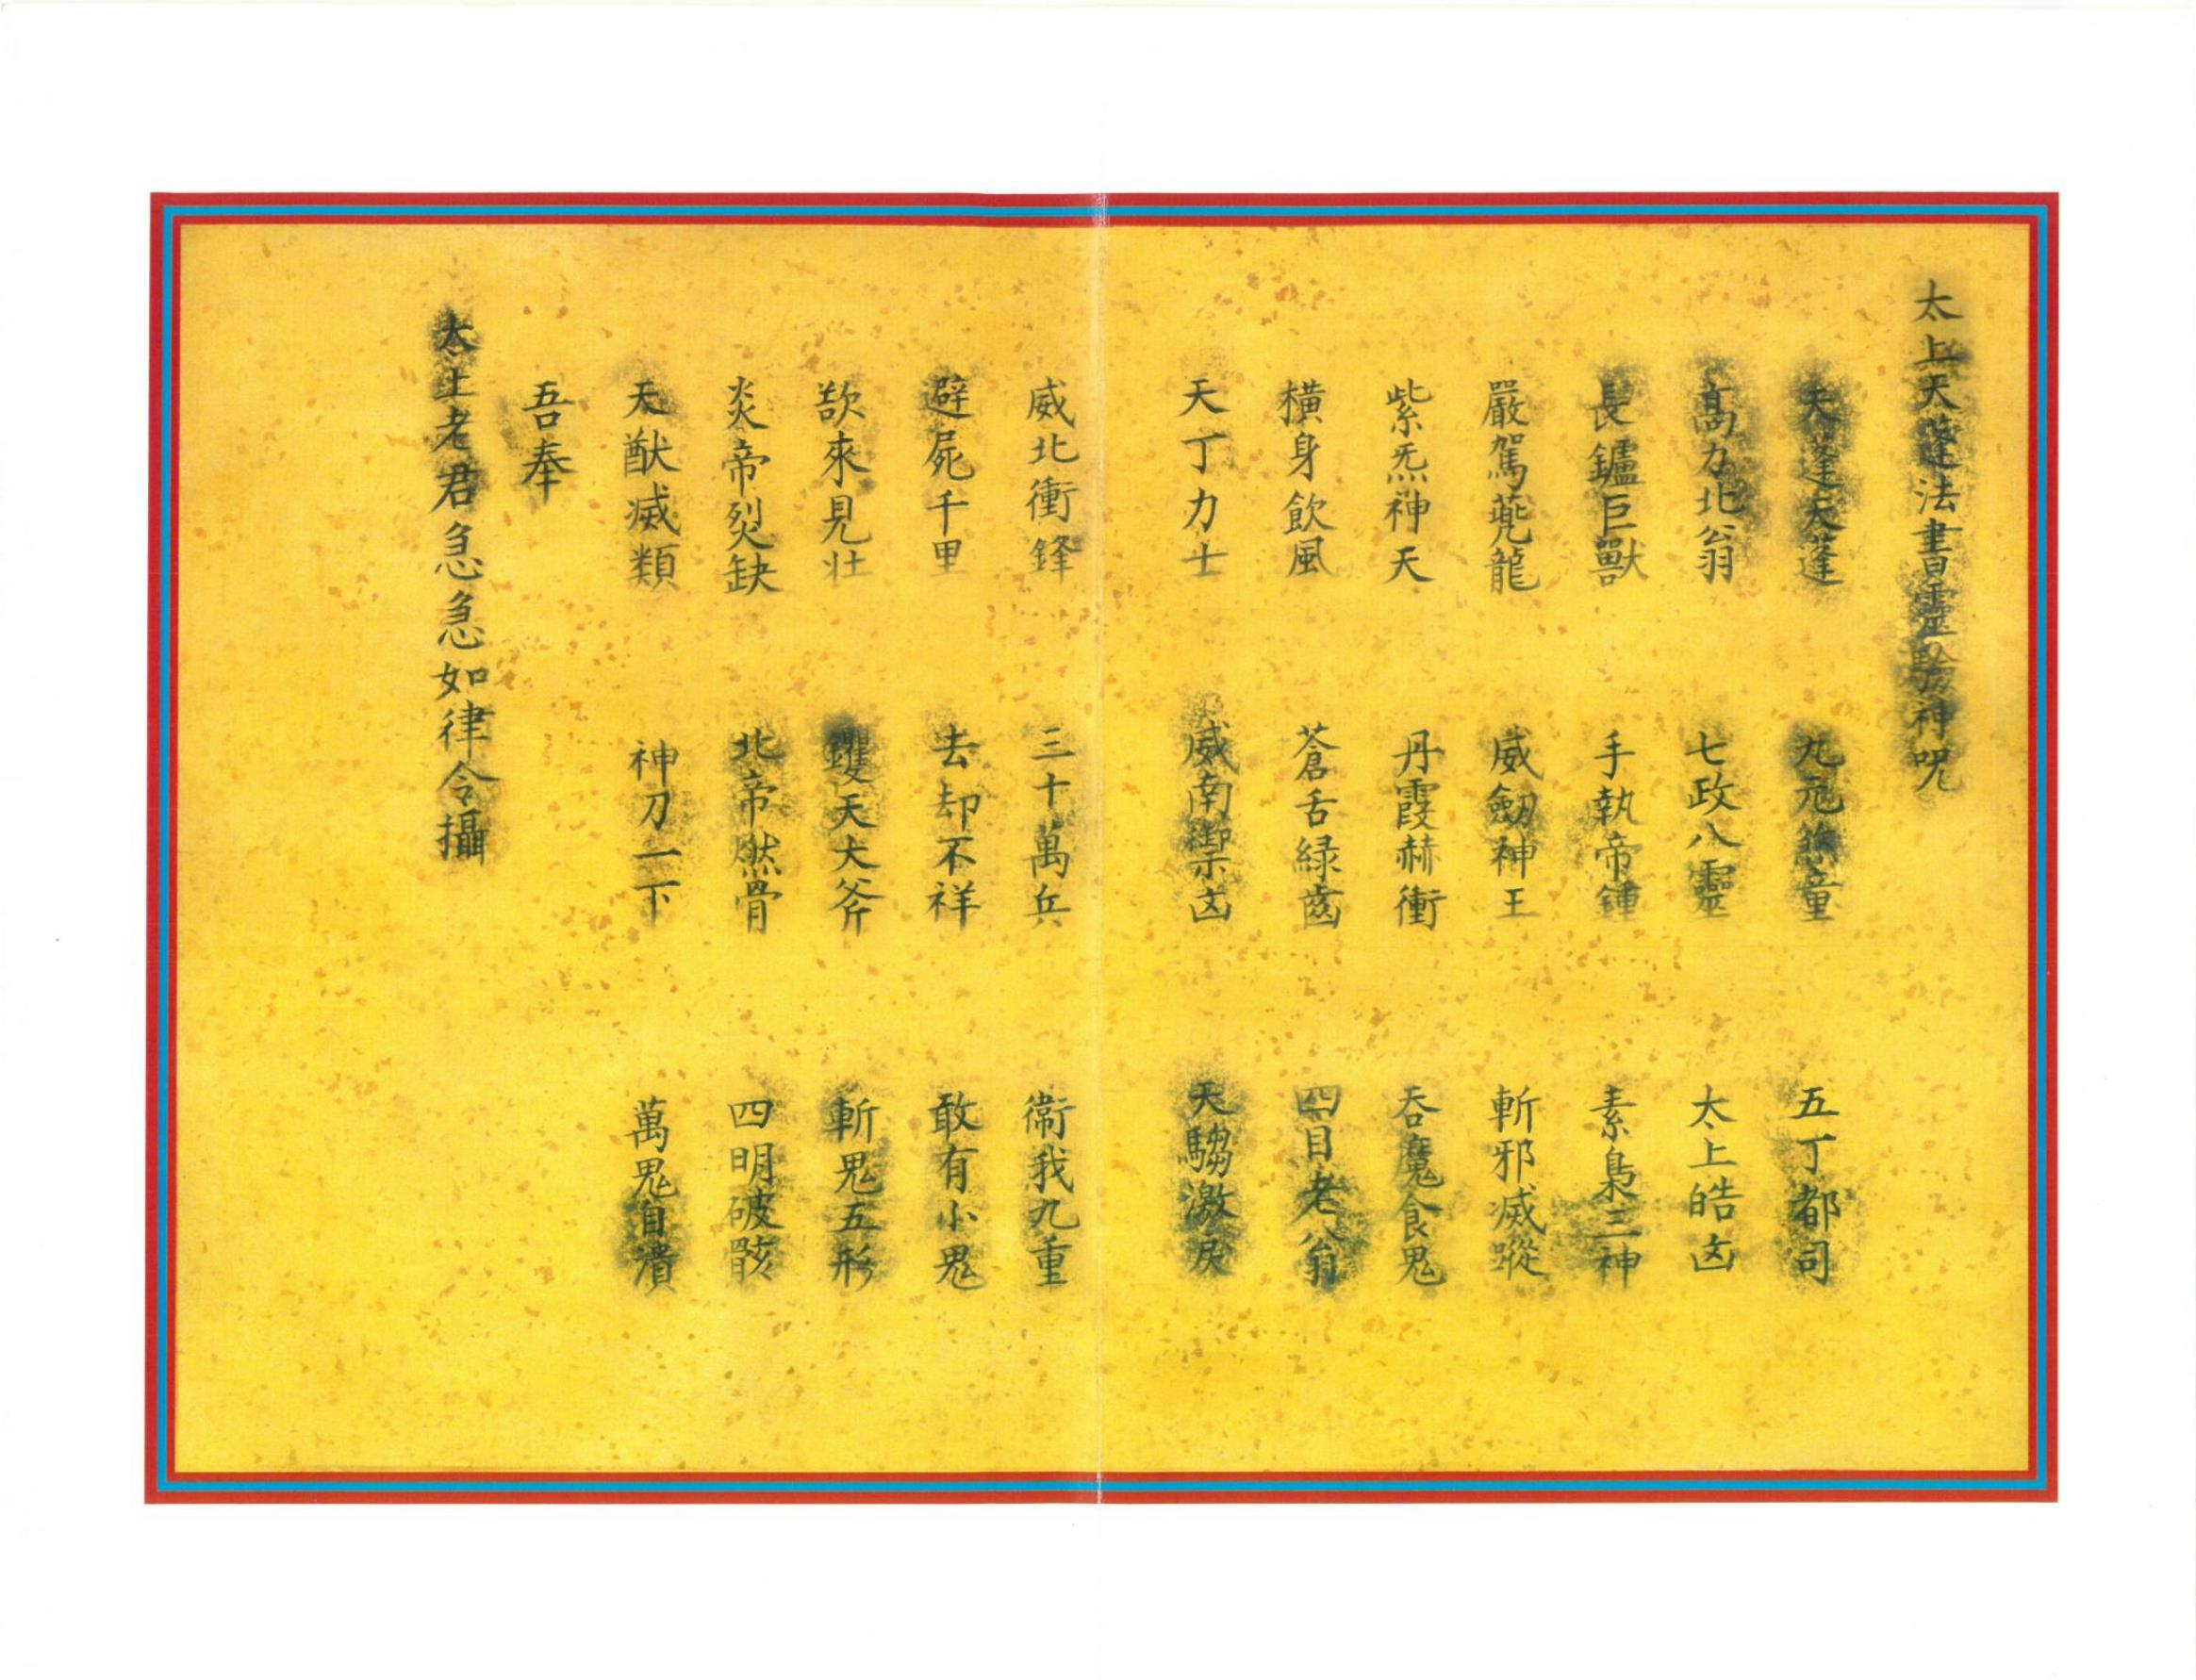 太上天蓬法書靈驗神呪
天蓬天蓬 九元煞童 五丁都司
高刀北翁 七政八靈 太上皓凶
長鑪巨獸 手執帝鍾 素梟三神
嚴駕夔龍 威劒神王 斬邪滅蹤
紫炁神天 丹霞赫衝 吞魔食鬼
橫身飲風 蒼舌緑齒 四目老翁
天丁力士 威南禦凶 天騶激戾
威北衝鋒 三十萬兵 衛我九重
避屍千里 去却不祥 敢有小鬼
欲來見壯 钁天大斧 斬鬼五形
炎帝裂缺 北帝燃骨 四明破骸
天猷滅類 神刀一下 萬鬼自潰
吾奉
太上老君急急如律令攝